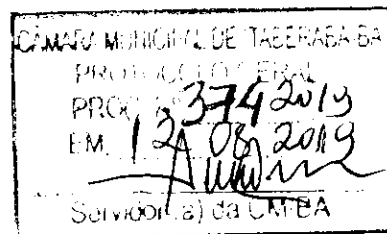 CÂMARA MUNICIPAL DE ITABERABA-BA
PROTOCOLO GERAL
PROC. 374 2019
EM, 12 08 2019
Servidor(a) da CM-BA